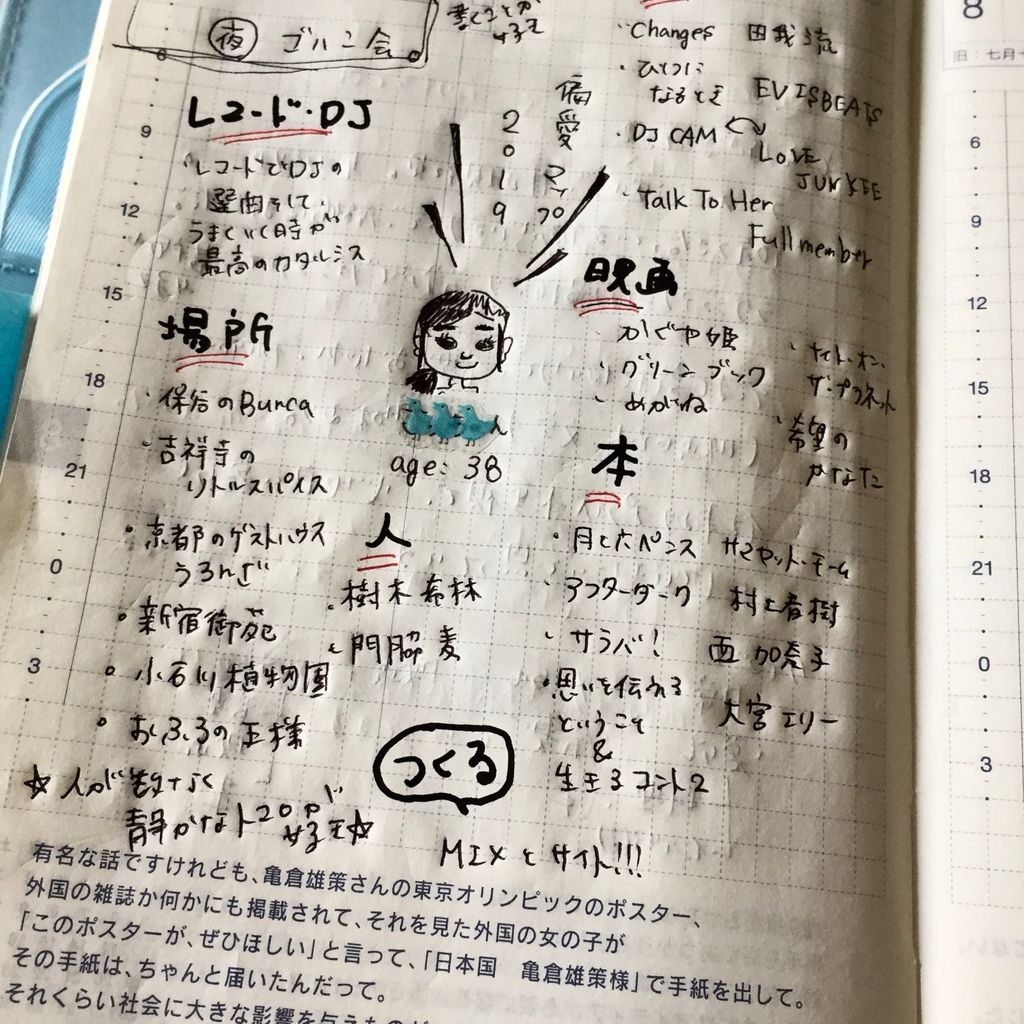 夜 ゴハン会
書くことが
好き
・Changes 田我流
・ひとつに
なるとき EVISBEATS
・DJ CAM
LOVE
JUNKIE
・Talk To Her
Full member
レコード・DJ
・レコードでDJの
選曲をして、
うまくいく時が
最高のカタルシス
2019
偏愛マップ
age: 38
場所
・保谷のBunca
・吉祥寺の
リトルスパイス
・京都のゲストハウス
うろんざ
・新宿御苑
・小石川植物園
・おふろの王様
☆人が少なく
静かなトコロが
好き☆
人
・樹木希林
・門脇麦
映画
・かぐや姫
・グリーンブック
・めがね
・ナイト・オン・
ザ・プラネット
・希望の
かなた
本
・月と六ペンス サマセット・モーム
・アフターダーク 村上春樹
・サラバ! 西加奈子
・思いを伝える
ということ 大宮エリー
&
生きるコント2
つくる
MIXとサイト!!!
有名な話ですけれども、亀倉雄策さんの東京オリンピックのポスター、
外国の雑誌か何かにも掲載されて、それを見た外国の女の子が
「このポスターが、ぜひほしい」と言って、「日本国 亀倉雄策様」で手紙を出して。
その手紙は、ちゃんと届いたんだって。
それくらい社会に大きな影響を与えたものが
6
9
12
15
18
21
0
3
8
旧：七月十
6
9
12
15
18
21
0
3